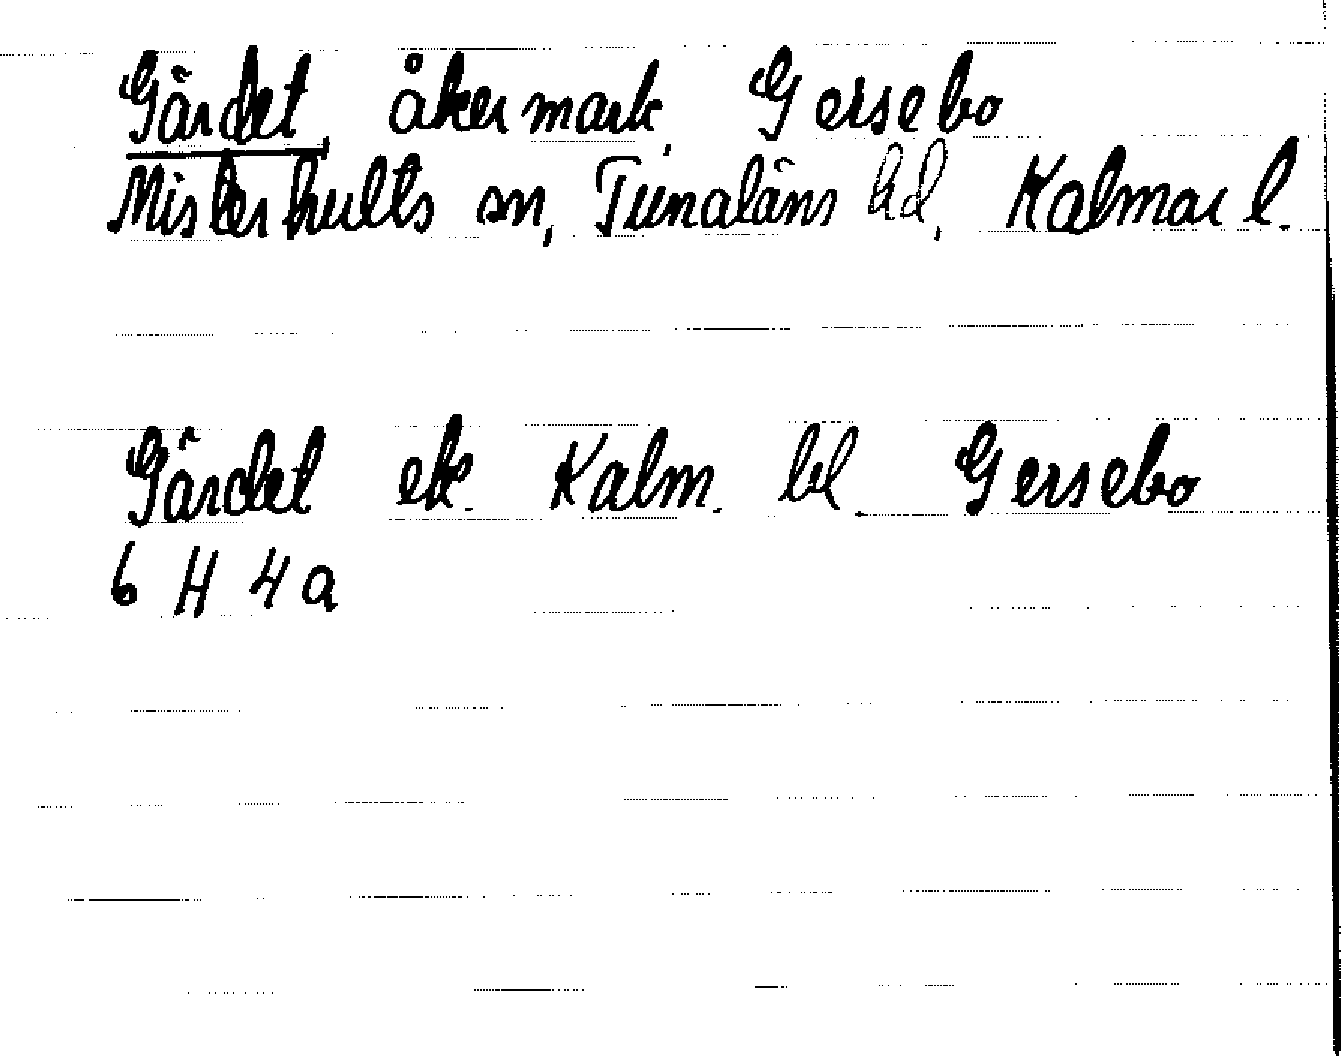 Gärdet, åkermark, Gersebo
Misterhults sn, Tunaläns hd, Kalmar l.
Gärdet ek. Kalm. bl. Gersebo
6 H 4a